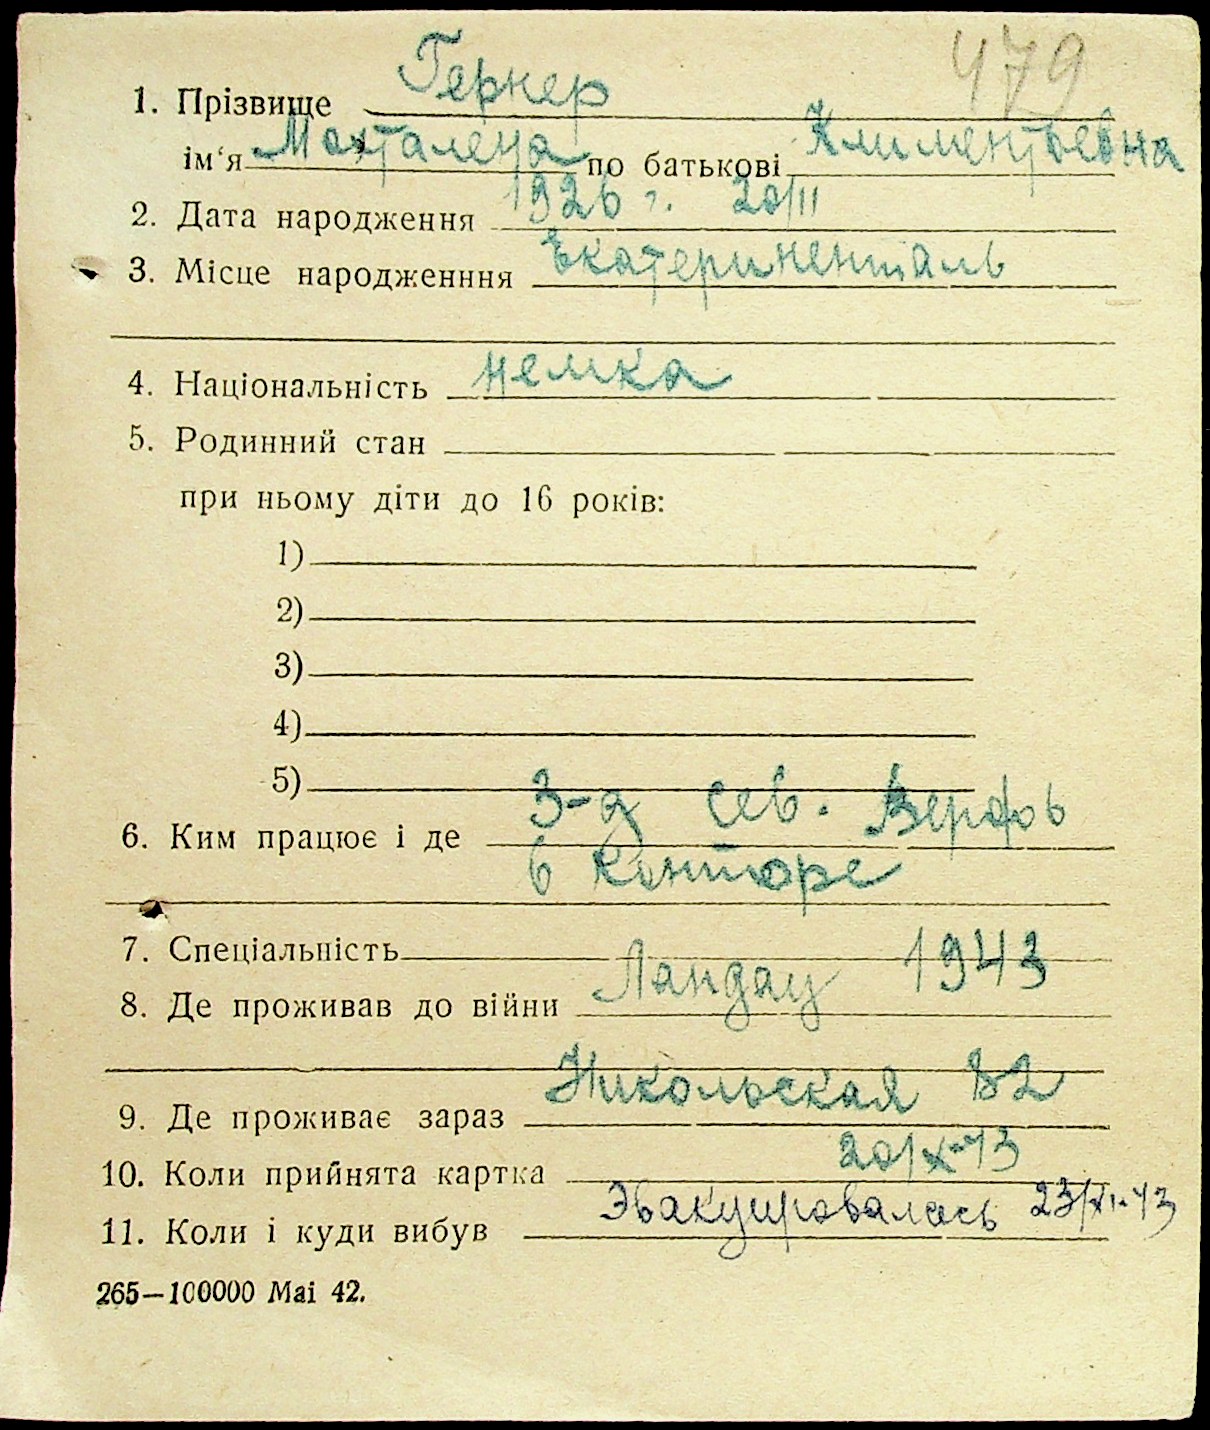 479
1. Прізвище Гернер
ім‘я Магталена по батькові Климентьевна
2. Дата народження 1926 г. 20/II
3. Місце народженння Екатериненталь
4. Національність немка
5. Родинний стан
при ньому діти до 16 років:
1)
2)
3)
4)
5)
6. Ким працює і де З-д Сев. Верфь
в конторе
7. Спеціальність
8. Де проживав до війни Ландау 1943
9. Де проживає зараз Никольская 82
10. Коли прийнята картка 20/X-43
11. Коли і куди вибув Эвакуировалась 23/XI-43
265—100000 Mai 42.